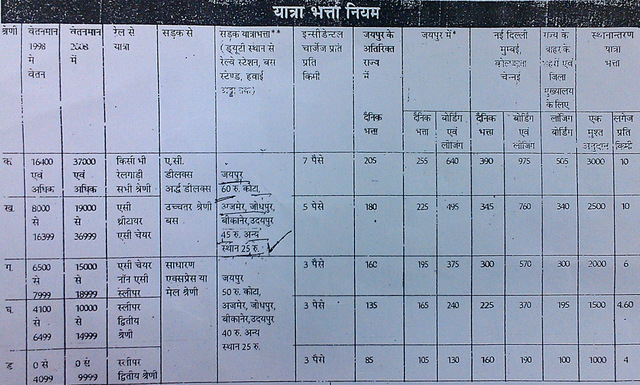 यात्रा भत्ता नियम
श्रेणी वेतनमान 1998 में वेतन वेतनमान 2008 में रेल से यात्रा सड़क से सड़क यात्राभत्ता** (ड्यूटी स्थान से रेल्वे स्टेशन, बस स्टेण्ड, हवाई अड्डा तक) इन्सीडेन्टल चार्जेज प्रति किमी जयपुर के अतिरिक्त राज्य में जयपुर में* नई दिल्ली मुम्बई, कोलकाता चेन्नई राज्य के बाहर के शहरों एवं जिला मुख्यालय के लिए स्थानान्तरण यात्रा भत्ता
दैनिक भत्ता दैनिक भत्ता बोर्डिंग एवं लॉजिंग दैनिक भत्ता बोर्डिंग एवं लॉजिंग लॉजिंग बोर्डिंग एक मुश्त अनुदान लगेज प्रति किमी
क. 16400 एवं अधिक 37000 एवं अधिक किसी भी रेलगाड़ी सभी श्रेणी ए.सी. डीलक्स अर्द्ध डीलक्स जयपुर 60 रु. कोटा, 7 पैसे 205 255 640 390 975 505 3000 10
ख. 8000 से 16399 19000 से 36999 एसी थ्रीटायर एसी चेयर उच्चतर श्रेणी बस अजमेर, जोधपुर, बीकानेर, उदयपुर 45 रु. अन्य स्थान 25 रु. 5 पैसे 180 225 495 345 760 340 2500 10
ग. 6500 से 7999 15000 से 18999 एसी चेयर नॉन एसी स्लीपर साधारण एक्सप्रेस या मेल श्रेणी जयपुर 50 रु. कोटा, 3 पैसे 160 195 375 300 570 300 2000 6
घ. 4100 से 6499 10000 से 14999 स्लीपर द्वितीय श्रेणी अजमेर, जोधपुर, बीकानेर, उदयपुर 40 रु. अन्य स्थान 25 रु. 3 पैसे 135 165 240 225 370 195 1500 4.60
ड 0 से 4099 0 से 9999 स्लीपर द्वितीय श्रेणी 3 पैसे 85 105 130 160 190 100 1000 4